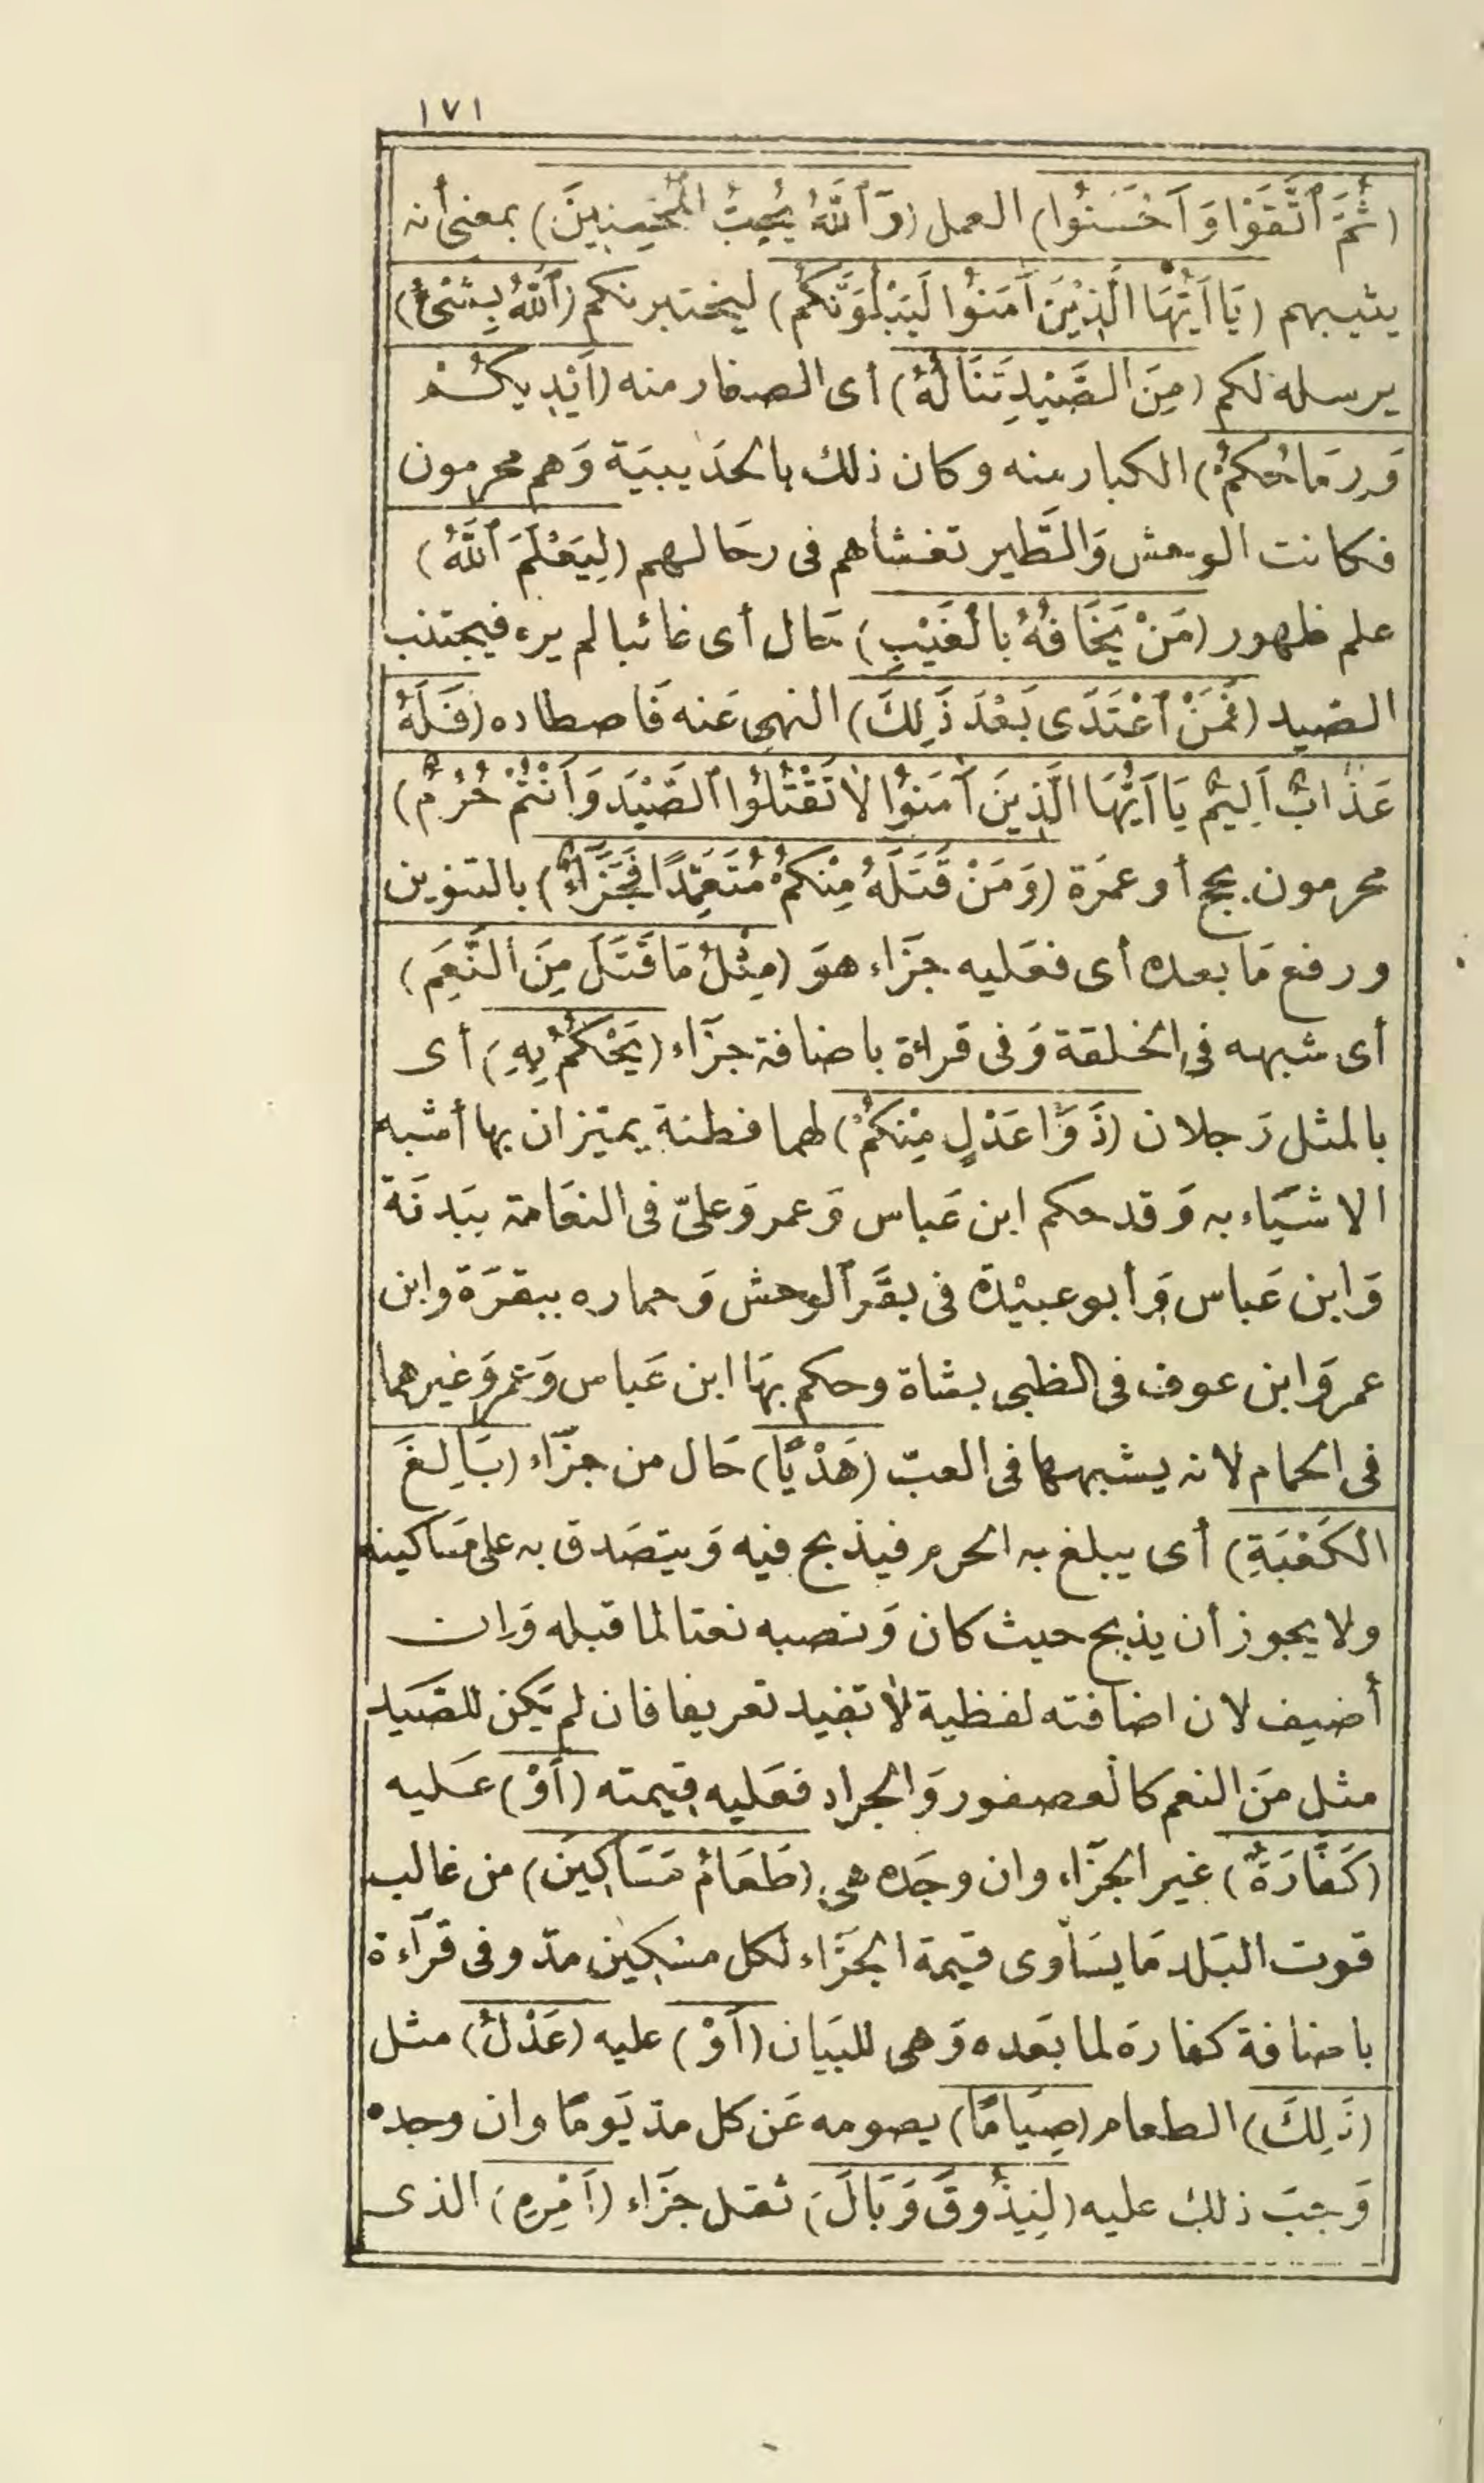 ١٧١
(ثُمَّ ٱتَّقَوْا وَأَحْسَنُوا) العمل (وَٱللَّهُ يُحِبُّ الْمُحْسِنِينَ) بمعنى أنه
يثيبهم (يَا أَيُّهَا الَّذِينَ آمَنُوا لَيَبْلُوَنَّكُمُ) ليختبرنكم (ٱللَّهُ بِشَىْءٍ)
يرسله لكم (مِنَ الصَّيْدِ تَنَالُهُ) أى الصغار منه (أَيْدِيكُمْ
وَرِمَاحُكُمْ) الكبار منه وكان ذلك بالحدَيبيَة وَهم محرمون
فكانت الوحش وَالطَّير تغشاهم فى رحَالهم (لِيَعْلَمَ ٱللَّهُ)
علم ظهور (مَنْ يَخَافُهُ بِالْغَيْبِ) حَال أى غائبا لم يره فيجتنب
الصَيد (فَمَنْ ٱعْتَدَى بَعْدَ ذَلِكَ) النهى عَنه فَاصطاده (فَلَهُ
عَذَابٌ أَلِيمٌ يَا أَيُّهَا الَّذِينَ آمَنُوا لَا تَقْتُلُوا ٱلصَّيْدَ وَأَنْتُمْ حُرُمٌ)
محرمون بحج أو عمرَة (وَمَنْ قَتَلَهُ مِنْكُمْ مُتَعَمِّدًا فَجَزَآءٌ) بالتنوين
ورفع مَا بعده أى فعَليه جزَاء هوَ (مِثْلُ مَا قَتَلَ مِنَ ٱلنَّعَمِ)
أى شبهه فى الخلقة وَفى قراءة باضافة جزَآء (يَحْكُمُ بِهِ) أى
بالمثل رَجلان (ذَوَا عَدْلٍ مِنْكُمْ) لهما فطنة يميّزان بها أشبه
الاشيَاء به وَقد حكم ابن عَباس وَعمر وَعلىّ فى النعَامة ببَدنَة
وَابن عَباس وَأبو عبيْدَة فى بقَر ٱلوحش وَحماره ببقرَة وابن
عمر وَابن عوف فى الظبى بشاة وحكم بهَا ابن عَباس وَعمر وَغيرهما
فى الحمام لانه يشبهها فى العبّ (هَدْيًا) حَال من جزَآء (بَالِغَ
الكَعْبَةِ) أى يبلغ به الحرم فيذبح فيه وَيتصَدق به على مسَاكينه
ولا يجوز أن يذبح حيث كان وَنصبه نعتا لما قبله وَإن
أضيف لان اضافته لفظية لا تفيد تعريفا فان لم يَكن للصَيد
مثل مَن النعم كالعصفور وَالجراد فعَليه قيمته (أَوْ) عَليه
(كَفَّارَةٌ) غير الجزَآء وان وجَده هى (طَعَامُ مَسَاكِينَ) من غالب
قوت البَلد مَا يسَاوى قيمة الجزَآء لكل مسْكِين مدّ وفى قرآءة
باضافة كفارَة لما بَعده وَهى للبَيان (أَوْ) عليه (عَدْلُ) مثل
(ذَلِكَ) الطعام (صِيَامًا) يصومه عَن كل مدّ يَومًا وان وجده
وَجبَ ذلك عليه (لِيَذُوقَ وَبَالَ) ثقل جزَآء (أَمْرِهِ) الذى